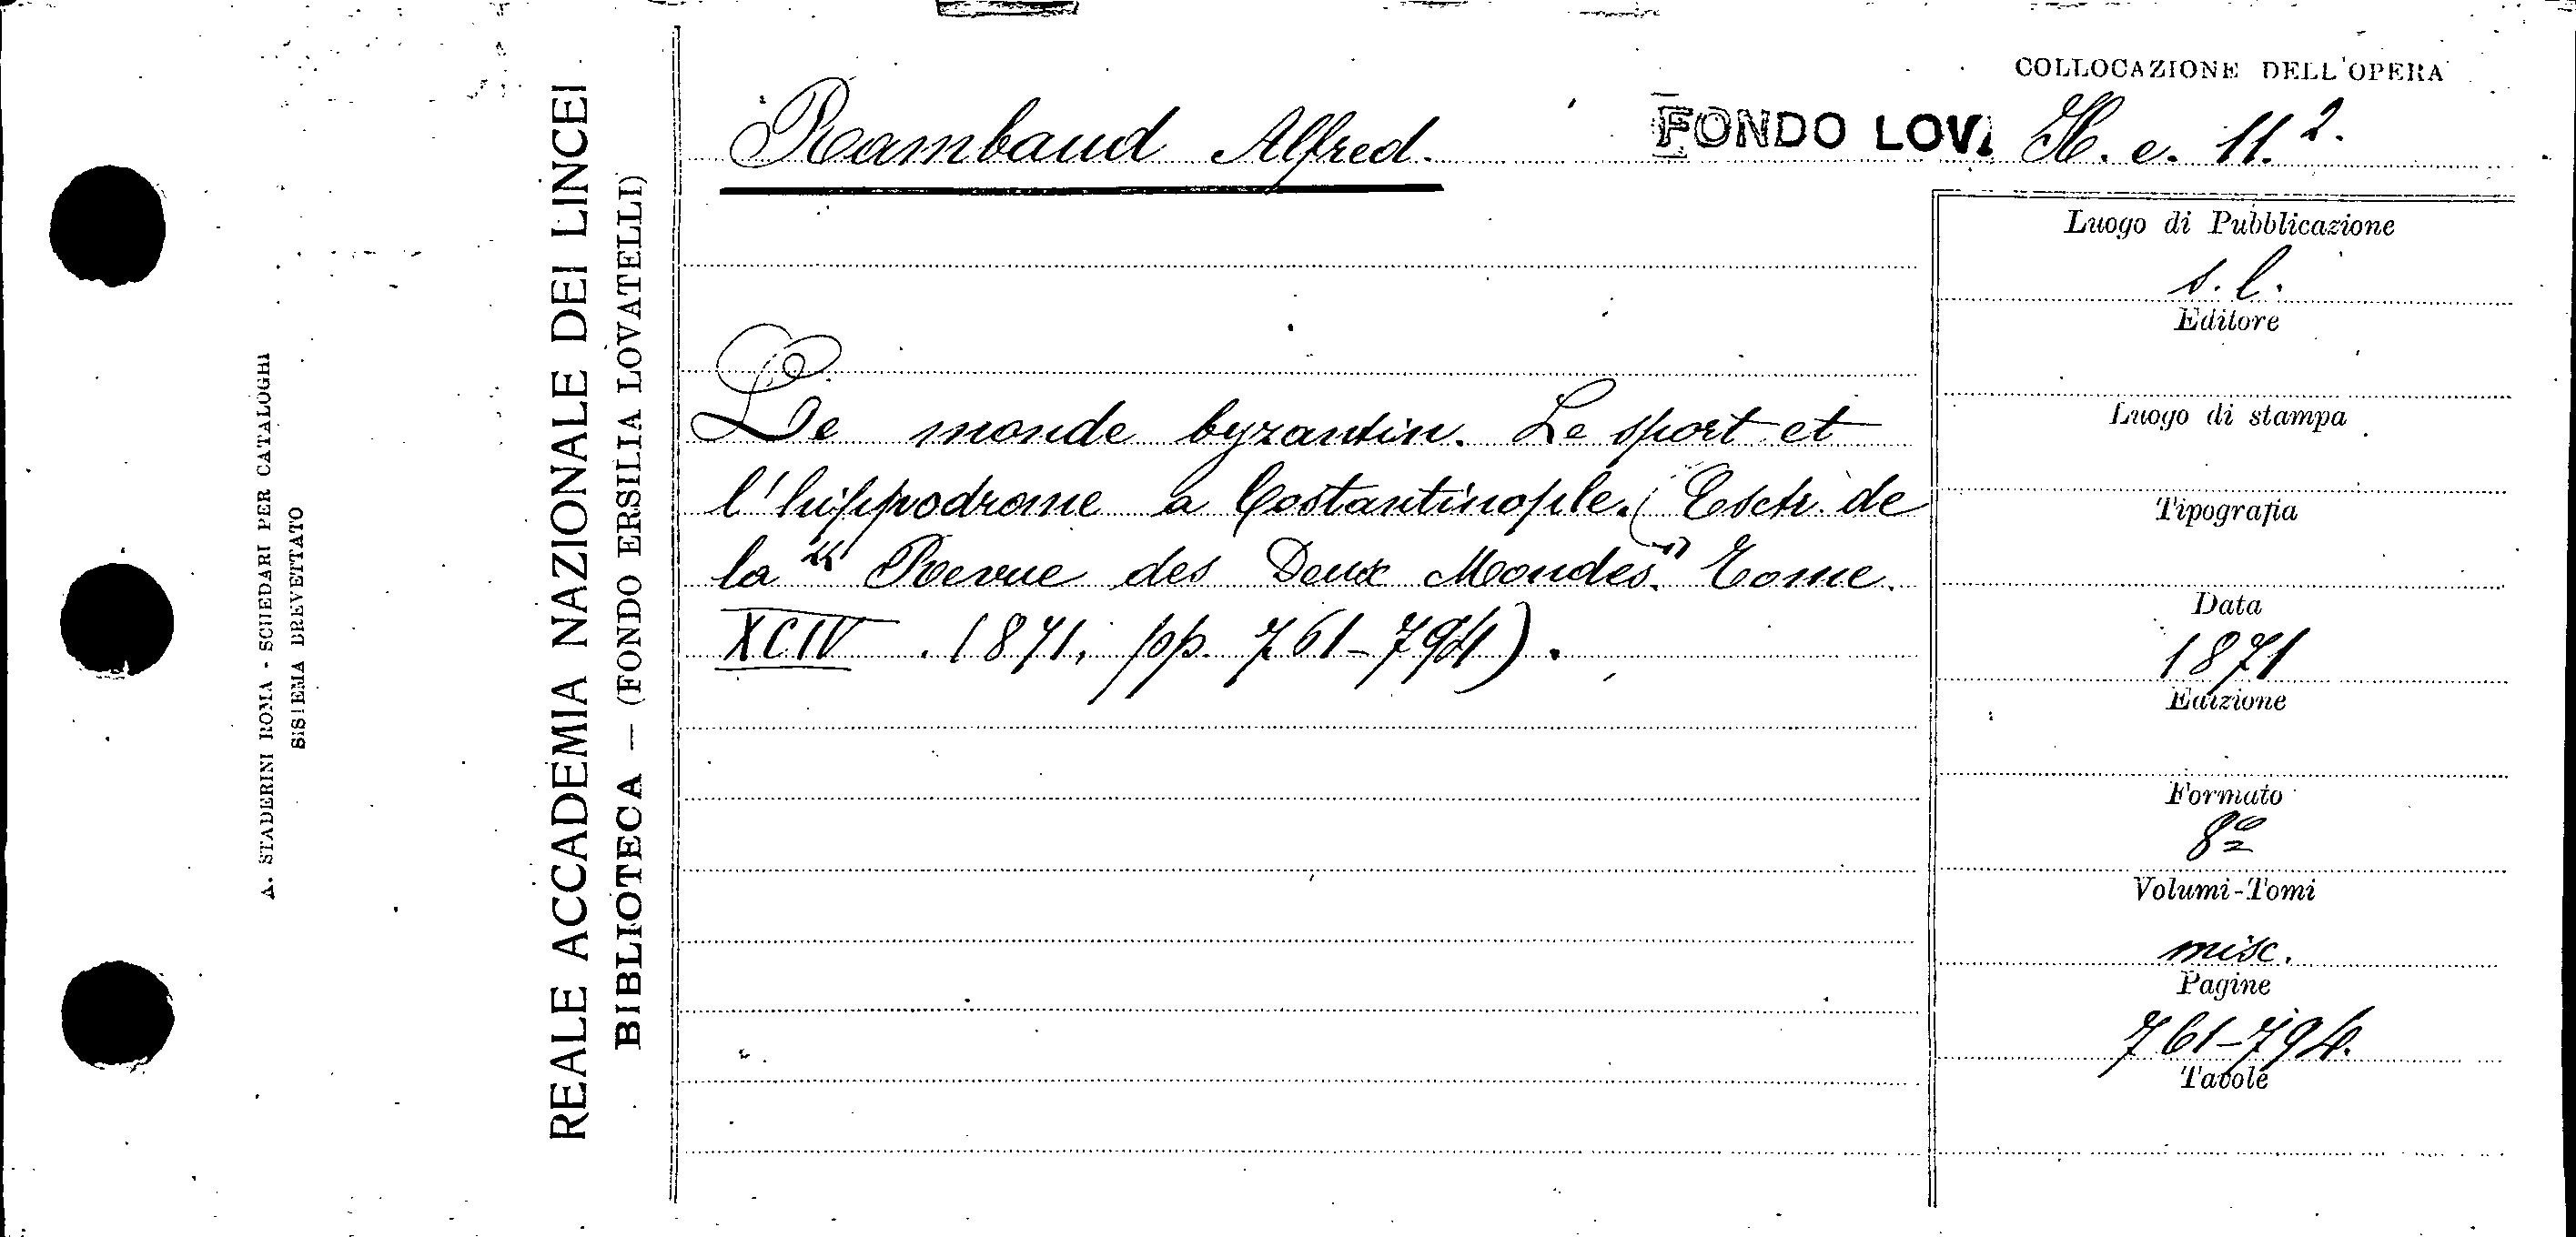 A. STADERINI ROMA - SCHEDARI PER CATALOGHI
SISTEMA BREVETTATO
REALE ACCADEMIA NAZIONALE DEI LINCEI
BIBLIOTECA — (FONDO ERSILIA LOVATELLI)
COLLOCAZIONE DELL'OPERA
Rambaud Alfred. FONDO LOV. H. e. 11.2.
Le monde byzantin. Le sport et
l'hippodrome a Costantinople. (Estr. de
la "Revue des Deux Mondes" Tome
XCIV. 1871, pp. 761-794).
Luogo di Pubblicazione
s. l.
Editore
Luogo di stampa
Tipografia
Data
1871
Edizione
Formato
8º
Volumi-Tomi
misc.
Pagine
761-794.
Tavole